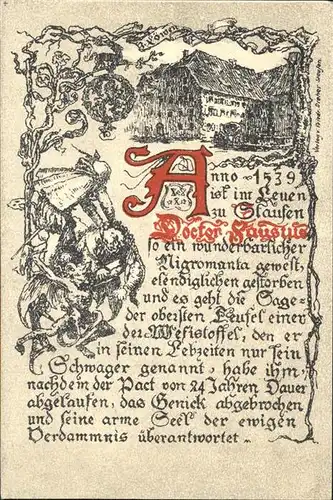 z. Löwen
Anno 1539
ist im Leuen
zu Staufen
Doctor Faustus
so ein wunderbarlicher
Nigromanta gewest,
elendiglichen gestorben
und es geht die Sage
der obersten Teufel einer
der Mefistoffel, den er
in seinen Lebzeiten nur sein
Schwager genannt, habe ihm,
nachdem der Pact von 24 Jahren Dauer
abgelaufen, das Genick abgebrochen
und seine arme Seel der ewigen
Verdammnis überantwortet